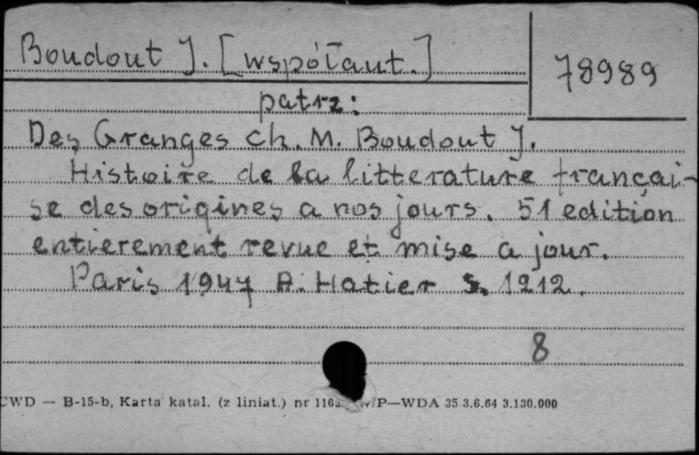 Boudout J. [współaut.]
78989
patrz:
Des Granges Ch. M. Boudout J.
Histoire de la litterature françai-
se des origines a nos jours. 51 edition
entierement revue et mise a jour.
Paris 1947 A. Hatier s. 1212.
8
CWD — B-15-b, Karta katal. (z liniat.) nr 116 /P—WDA 35 3.6.64 3.130.000